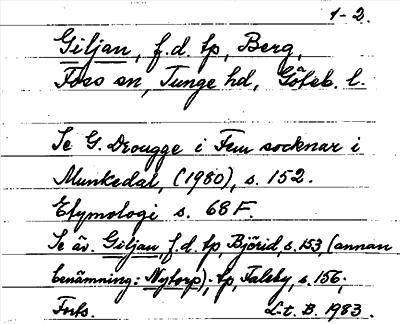 1-2.
Giljan, f.d. tp, Berg,
Foss sn, Tunge hd, Göteb. l.
Se G. Drougge i Fem socknar i
Munkedal, (1980), s. 152.
Etymologi s. 68 F.
Se äv. Giljan, f.d. tp, Björid, s. 153, (annan
benämning: Nytorp); tp, Faleby, s. 156.
Forts. L-t. B. 1983.